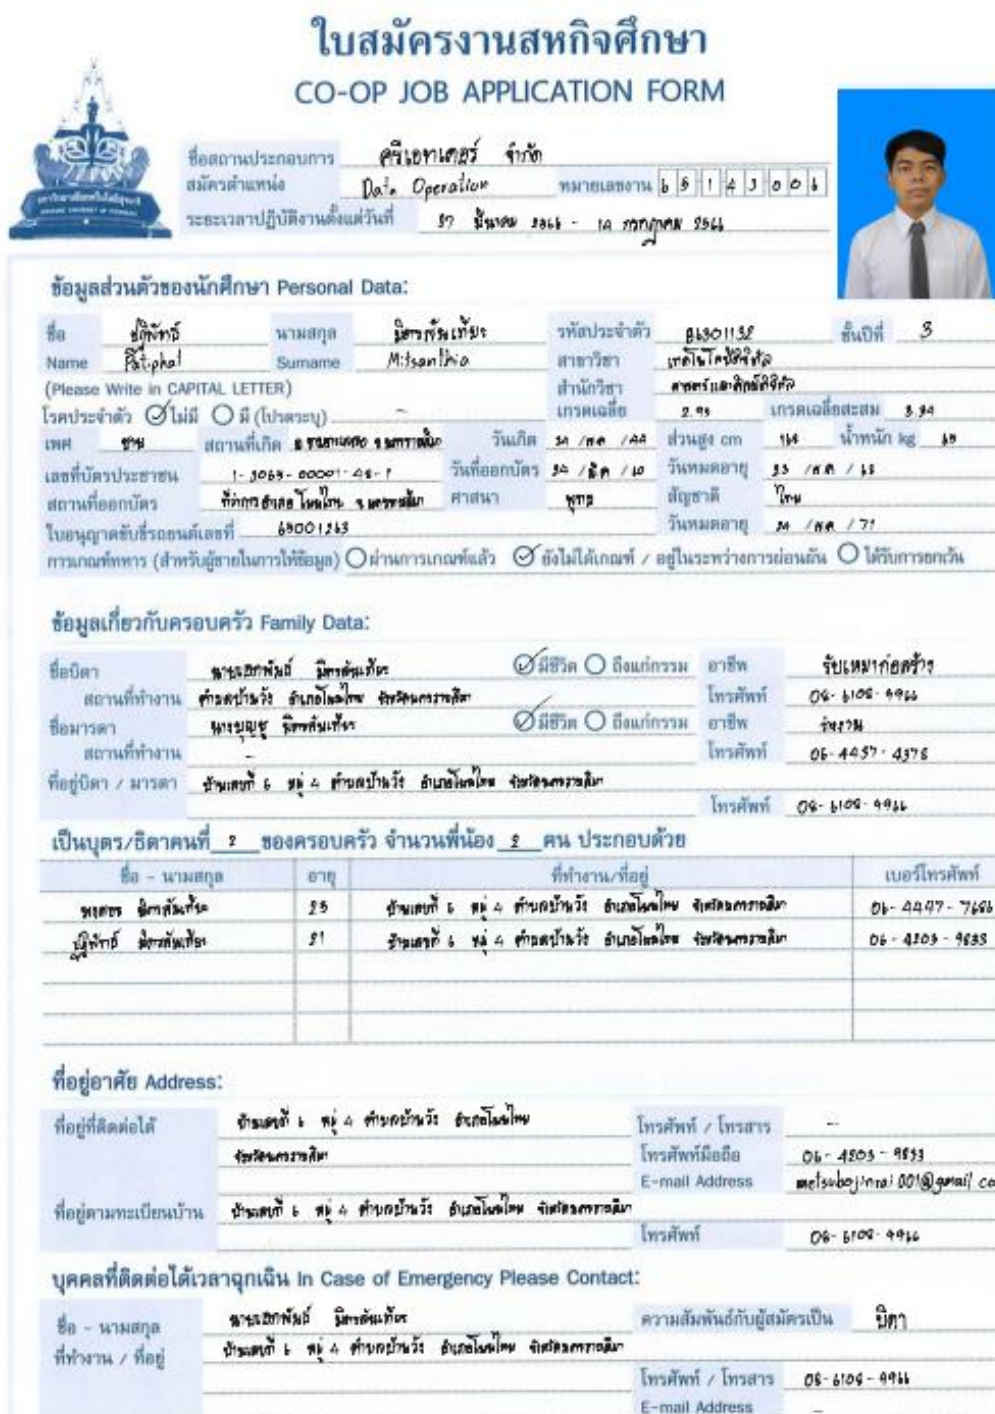 ใบสมัครงานสหกิจศึกษา
CO-OP JOB APPLICATION FORM
ชื่อสถานประกอบการ ครีเอทเตอร์ จำกัด
สมัครตำแหน่ง Data Operation หมายเลขงาน 6 5 1 4 3 0 0 6
ระยะเวลาปฏิบัติงานตั้งแต่วันที่ 27 มีนาคม 2566 - 14 กรกฎาคม 2566
ข้อมูลส่วนตัวของนักศึกษา Personal Data:
ชื่อ ปฏิพัทธ์ นามสกุล รหัสประจำตัว B6301132 ชั้นปีที่ 3
Name Patiphat Surname Mitsanthia สาขาวิชา เทคโนโลยีดิจิทัล
(Please Write in CAPITAL LETTER) สำนักวิชา ศาสตร์และศิลป์ดิจิทัล
โรคประจำตัว ไม่มี มี (โปรดระบุ) - เกรดเฉลี่ย 2.93 เกรดเฉลี่ยสะสม
เพศ ชาย สถานที่เกิด วันเกิด ส่วนสูง cm น้ำหนัก kg
เลขที่บัตรประชาชน วันที่ออกบัตร วันหมดอายุ
สถานที่ออกบัตร ที่ว่าการอำเภอ โนนไทย จ.นครราชสีมา ศาสนา พุทธ สัญชาติ ไทย
ใบอนุญาตขับขี่รถยนต์เลขที่ 65001263 วันหมดอายุ
การเกณฑ์ทหาร (สำหรับผู้ชายในการให้ข้อมูล) ผ่านการเกณฑ์แล้ว ยังไม่ได้เกณฑ์ / อยู่ในระหว่างการผ่อนผัน ได้รับการยกเว้น
ข้อมูลเกี่ยวกับครอบครัว Family Data:
ชื่อบิดา นายเอกพันธ์ มีชีวิต ถึงแก่กรรม อาชีพ รับเหมาก่อสร้าง
สถานที่ทำงาน ตำบลบ้านวัง อำเภอโนนไทย จังหวัดนครราชสีมา โทรศัพท์ 08-6108-9966
ชื่อมารดา นางบุญชู มีชีวิต ถึงแก่กรรม อาชีพ
สถานที่ทำงาน - โทรศัพท์ 06-4457-4378
ที่อยู่บิดา / มารดา บ้านเลขที่ 6 หมู่ 4 ตำบลบ้านวัง อำเภอโนนไทย จังหวัดนครราชสีมา
โทรศัพท์ 08-6108-9966
เป็นบุตร/ธิดาคนที่ 2 ของครอบครัว จำนวนพี่น้อง 2 คน ประกอบด้วย
ชื่อ - นามสกุล อายุ ที่ทำงาน/ที่อยู่ เบอร์โทรศัพท์
25 บ้านเลขที่ 6 หมู่ 4 ตำบลบ้านวัง อำเภอโนนไทย จังหวัดนครราชสีมา 06-4447-7686
ปฏิพัทธ์ 21 บ้านเลขที่ 6 หมู่ 4 ตำบลบ้านวัง อำเภอโนนไทย จังหวัดนครราชสีมา 06-4203-9833
ที่อยู่อาศัย Address:
ที่อยู่ที่ติดต่อได้ บ้านเลขที่ 6 หมู่ 4 ตำบลบ้านวัง อำเภอโนนไทย โทรศัพท์ / โทรสาร -
จังหวัดนครราชสีมา โทรศัพท์มือถือ 06-4203-9833
E-mail Address metsubojinrai001@gmail.co
ที่อยู่ตามทะเบียนบ้าน บ้านเลขที่ 6 หมู่ 4 ตำบลบ้านวัง อำเภอโนนไทย จังหวัดนครราชสีมา
โทรศัพท์ 08-6108-9966
บุคคลที่ติดต่อได้เวลาฉุกเฉิน In Case of Emergency Please Contact:
ชื่อ - นามสกุล นายเอกพันธ์ ความสัมพันธ์กับผู้สมัครเป็น บิดา
ที่ทำงาน / ที่อยู่ บ้านเลขที่ 6 หมู่ 4 ตำบลบ้านวัง อำเภอโนนไทย จังหวัดนครราชสีมา
โทรศัพท์ / โทรสาร 08-6108-9966
E-mail Address -